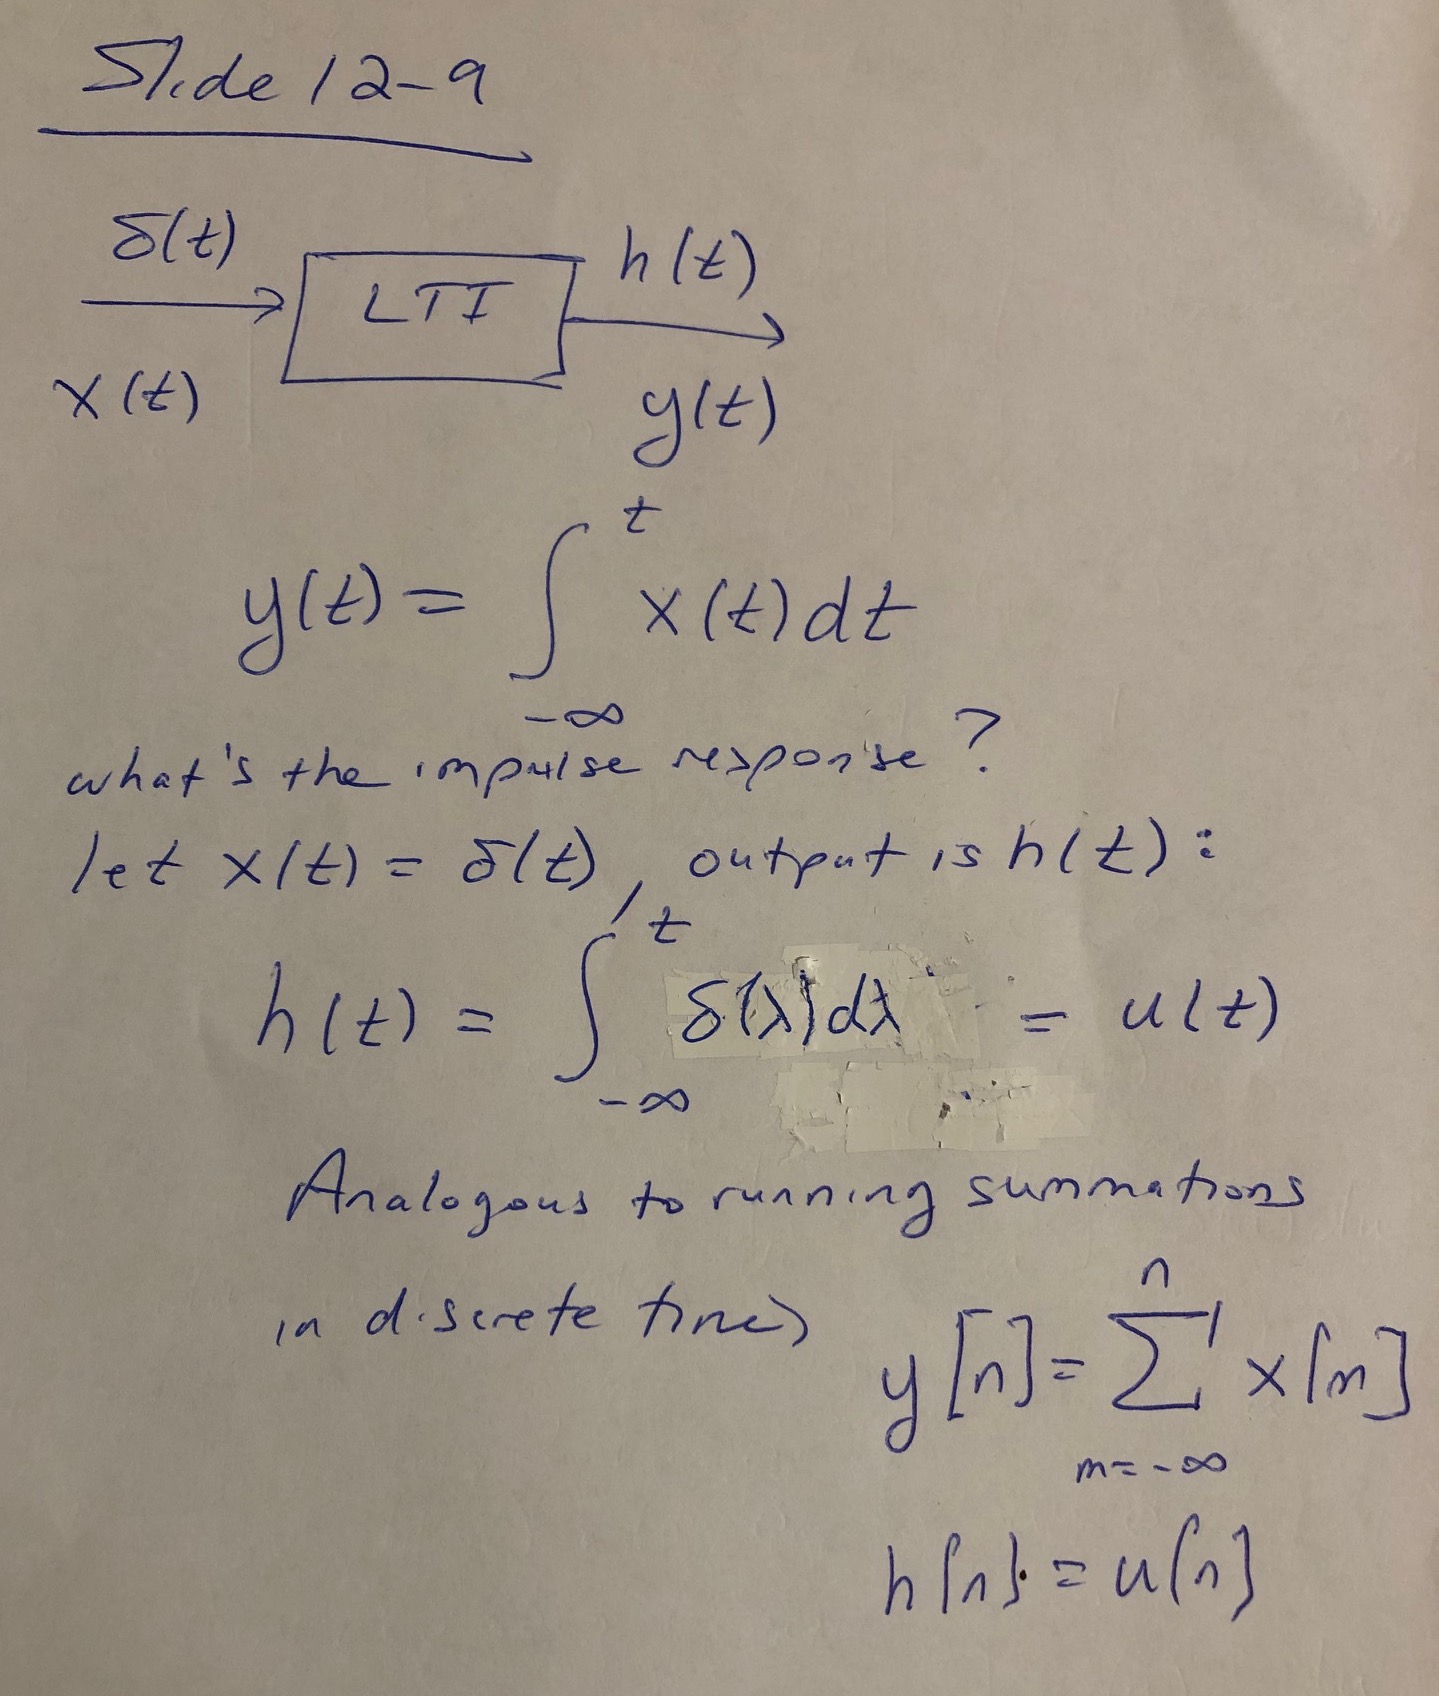 Slide 12-9
δ(t)
h(t)
LTI
x(t)
y(t)
y(t) = ∫_{-∞}^{t} x(t) dt
what's the impulse response?
let x(t) = δ(t), output is h(t):
h(t) = ∫_{-∞}^{t} δ(λ) dλ = u(t)
Analogous to running summations
in discrete time)
y[n] = ∑_{m=-∞}^{n} x[m]
h[n] = u[n]